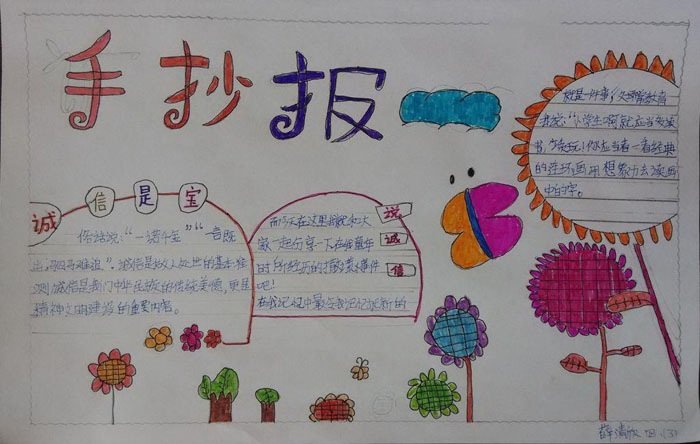 手抄报
诚信是宝
俗话说："一诺千金""一言既
出,驷马难追"。诚信是做人处世的基本准
则,诚信是我们中华民族的传统美德,更是
精神文明建设的重要内容。
说诚信
而今天在这里我想和大
家一起分享一下在我童年
时所经历的撒谎事件
吧!
在我记忆中最
就是一件事,父母常教育
我说:"小学生啊就应当多读
书,少贪玩!你应当看一看经典
的连环画用想象力去读